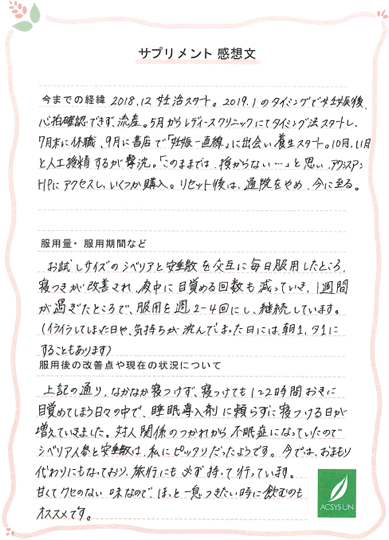 サプリメント 感想文
今までの経緯 2018.12 妊活スタート。2019.1のタイミングで妊娠後、
心拍確認できず、流産。5月からレディースクリニックにてタイミング法スタートし、
7月末に休職、9月に書店で「妊娠一直線」に出会い養生スタート。10月、11月
と人工授精するが撃沈。「このままでは、授からない…」と思い、アクシスアン
HPにアクセスし、いくつか購入。リセット後は、通院をやめ、今に至る。
服用量・服用期間など
お試しサイズのシベリアと安 散を交互に毎日服用したところ、
寝つきが改善され、夜中に目覚める回数も減っていき、1週間
が過ぎたところで、服用を週2-4回にし、継続しています。
(イライラしてしまった日や、気持ちが沈んでしまった日には、朝1、夕1に
することもあります)
服用後の改善点や現在の状況について
上記の通り、なかなか寝つけず、寝つけても1~2時間おきに
目覚めてしまう日々の中で、睡眠導入剤に頼らずに寝つける日が
増えていきました。対人関係のつかれから不眠症になっていたので
シベリア人参と安 散は、私にピッタリだったようです。今では、お守り
代わりにもなっており、旅行にも必ず持って行っています。
甘くてクセのない味なので、ほっと一息つきたい時に飲むのも
オススメです。
ACSYSUN